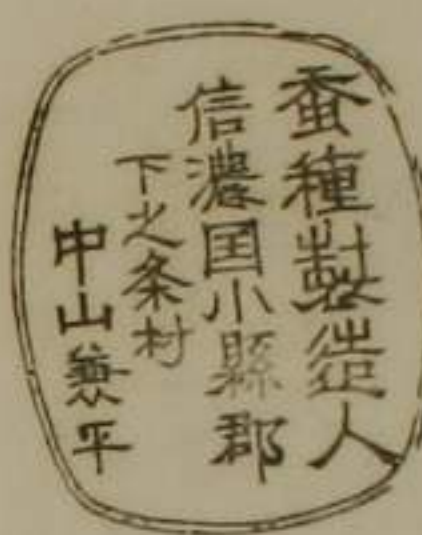 蚕種製造人
信濃国小縣郡
下之条村
中山兼平